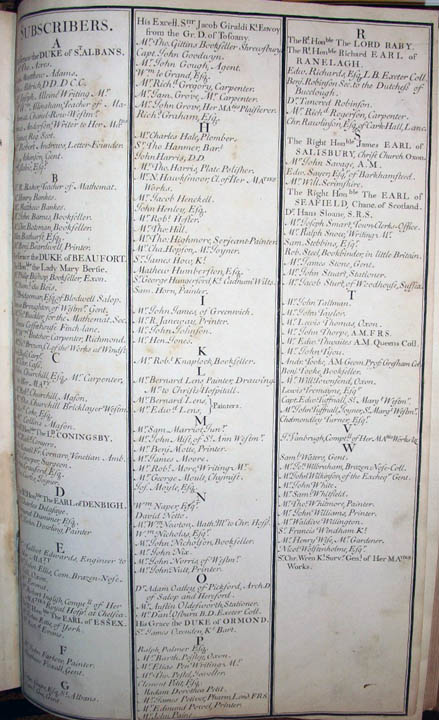 SUBSCRIBERS.
A
the DUKE of St. ALBANS.
Acres.
Matthew Adams.
Aldrich, D.D. C.C.
Writing Mr.
Teacher of Ma-
Chanel-Row-Westmr.
Anderson, Writer to her Matie
Reg. Scot.
Robert Andrews, Letter-Founder
Gent.
Esqr.
B
Baker, Teacher of Mathemat.
Henry Bankes.
Matthew Bankes.
John Barnes, Bookseller.
Bateman, Bookseller.
Esqr.
Benj. Beardwell, Printer.
the DUKE of BEAUFORT.
the Lady Mary Bertie.
Philip Bishop, Bookseller, Exon.
Esqr. of Blodwell Salop.
of Westmr. Gent.
for the Mathemat. Soc.
Finch-lane.
Carpenter, Richmond.
of the Works at Winds.
C
Esqr.
Churchill, Esqr. Mr. Carpenter,
to Her Maty
Churchill, Mason.
Churchill Bricklayer Westm.
Esqr.
Mason.
The Ld. CONINGSBY.
Conyers.
Fr. Cornaro, Venetian Amb.
Cowper Surgeon.
Crauford Esqr.
Joyner.
D
The EARL of DENBIGH.
Delafaye.
Esqr.
Dowling, Painter
E
Edwards, Engineer to
Maty
Ellis, Com. Brazen-Nose.
Oxon.
English, Comptr. of Her
Royal Hospl. at Chelsea.
The EARL of ESSEX.
of York.
Evans.
F
John Fartern, Painter.
Foxall, Gent.
G
Esqr. St. Albans.
His Excell. Snr. Jacob Giraldi Kt. Envoy
from the Gr. D. of Toscany.
Mr. Tho. Gittins Bookseller Shrewsbury.
Capt. John Goodwyn.
Mr. John Gough, Agent.
Wm. le Grand, Esqr.
Mr. Richd. Gregory, Carpenter.
Mr. Sam. Grove, Mr. Carpenter.
Mr. John Grove, Her Maties. Plaisterer.
Richd. Graham, Esqr.
H
Mr. Charles Hals, Plomber.
Sr. Tho. Hanmer, Bart.
John Harris, D.D.
Mr. Tho. Harris, Plate Polisher.
Mr. N. Hawksmoor, Cl. of Her Maties
Works.
Mr. Jacob Henckell.
John Henley, Esqr.
Mr. Robt. Hester.
Mr. Tho. Hill.
Mr. Tho. Highmore, Serjeant-Painter.
Mr. Cha. Hopson, Mr. Joyner.
Sr. James How, Kt.
Mathew Humberton, Esqr.
Sr. George Hungerford, Kt. Cadnum Wilts.
Sam. Horn, Painter.
I
Mr. John James, of Greenwich.
W. R. Janeway, Printer.
Mr. John Johnson.
Mr. Hen. Jones.
K
Mr. Robt. Knaplock, Bookseller.
L
Mr. Bernard Lens Painter, Drawing
Mr. to Christs Hospitall.
Mr. Bernard Lens,
Mr. Edwd. Lens, Painters.
M
Mr. Sam. Marriot, Junr.
Mr. John Mist, of St. Ann Westmr.
Mr. Benj. Motte, Printer.
Mr. James Moore.
Mr. Robt. More, Writing Mr.
Mr. George Moult, Chymist.
Jos. Moyle, Esqr.
N
Wm. Naper, Esqr.
David Nette.
Mr. Wm. Newton, Math. Mr. to Chr. Hosp.
Wm. Nicholas, Esqr.
Mr. John Nicholson, Bookseller.
Mr. John Nix.
Mr. John Norris, of Westmr.
Mr. John Nutt, Printer.
O
Dr. Adam Oatley, of Pickford, Arch D.
of Salop and Hereford.
Mr. Austin Oldesworth, Stationer.
Mr. Danl. Osburn, B.D. Exeter Coll.
His Grace the DUKE of ORMOND.
Sr. James Oxenden, Kt. Bart.
P
Ralph Palmer, Esqr.
Mr. Barth. Pesley, Oxon.
Mr. Elias Pen, Writing Mr.
Mr. Tho. Pestel, Traveller.
Clement Petit, Esqr.
Madam Dorothea Petit.
Mr. James Petiver, Pharm. Lond. F.R.S.
Mr. Edmund Powel, Printer.
Mr. John Pains
R
The Rt. Honble. The LORD RABY.
The Rt. Honble. Richard EARL of
RANELAGH.
Edw. Richards, Esqr. L.B. Exeter Coll.
Berg. Robinson Sec. to the Dutchess of
Buccleugh.
Dr. Tancred Robinson.
Mr. Richd. Rogerson, Carpenter.
Chr. Rawlinson, Esqr. of Cark-Hall, Lanc.
S
The Right Honble. James EARL of
SALISBURY, Christ Church Oxon.
Mr. John Savage, A.M.
Edw. Sayer, Esqr. of Barkhamsted.
Mr. Will. Scrimshire.
The Right Honble. The EARL of
SEAFIELD, Chanc. of Scotland.
Dr. Hans Sloane, S.R.S.
Mr. Joseph Smart, Town-Clerks-Office.
Mr. Ralph Snow, Writing Mr.
Sam. Stebbing, Esqr.
Rob. Steel, Bookbinder, in little Britain.
Mr. James Stone, Gent.
Mr. John Stuart, Stationer.
Mr. Jacob Sturt, of Woodhouse, Sussix.
T
Mr. John Tallman.
Mr. John Taylor.
Mr. Lewis Thomas, Oxon.
Mr. John Thorpe, A.M. F.R.S.
Mr. Edw. Thwaites A.M. Queens Coll.
Mr. John Tijou.
Andr. Tooke, A.M. Geom. Profr. Gresham Col.
Benj. Tooke, Bookseller.
Mr. Will. Townsend, Oxon.
Lewis Tremaine, Esqr.
Capt. Edw. Tuffnall, St. Mary Westmr.
Mr. John Tuffnall, Joyner, St. Mary Westmr.
Cholmondley Turner, Esqr.
V
Sr. Vanbrugh, Comptr. of Her Maties. Works &c
W
Saml. Waters, Gent.
Mr. Jos. Wilbraham, Brazen Nose-Coll.
Mr. John Wilkinson of the Excheqr. Gent.
Mr. John White.
Mr. Saml. Whitfeld.
Mr. Tho. Whitmore, Painter.
Mr. John Williams, Printer.
Mr. Waldive Willington.
Sr. Francis Windham Kt.
Mr. Henry Wise, Mr. Gardener.
Nicol. Wolstenholme, Esqr.
Sr. Chr. Wren Kt. Survr. Genl. of Her Maties
Works.